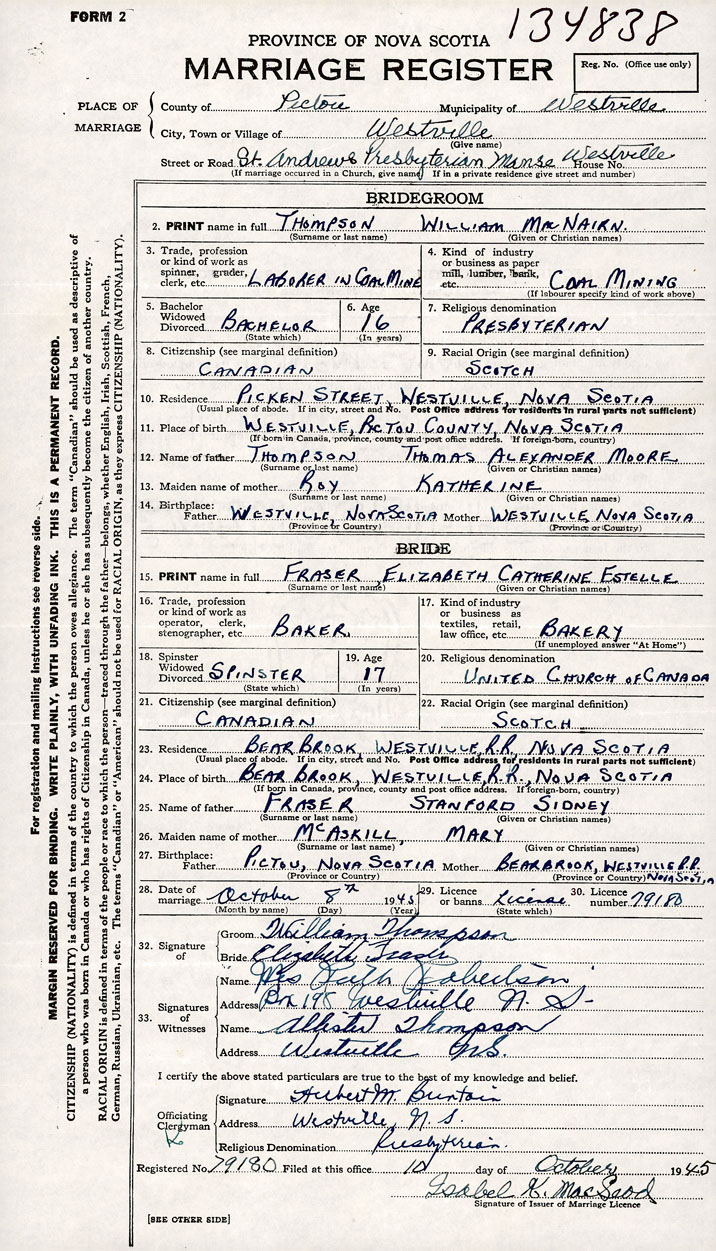 FORM 2
134838
PROVINCE OF NOVA SCOTIA
MARRIAGE REGISTER
Reg. No. (Office use only)
PLACE OF MARRIAGE
County of Pictou Municipality of Westville
City, Town or Village of Westville
(Give name)
Street or Road St. Andrews Presbyterian Manse Westville House No.
(If marriage occurred in a Church, give name) If in a private residence give street and number)
BRIDEGROOM
2. PRINT name in full THOMPSON WILLIAM MACNAIRN.
(Surname or last name) (Given or Christian names)
3. Trade, profession or kind of work as spinner, grader, clerk, etc. LABORER IN COAL MINE
4. Kind of industry or business as paper mill, lumber, bank, etc. COAL MINING
(If labourer specify kind of work above)
5. Bachelor Widowed Divorced BACHELOR (State which)
6. Age 16 (In years)
7. Religious denomination PRESBYTERIAN
8. Citizenship (see marginal definition) CANADIAN
9. Racial Origin (see marginal definition) SCOTCH
10. Residence PICKEN STREET, WESTVILLE, NOVA SCOTIA
(Usual place of abode. If in city, street and No. Post Office address for residents in rural parts not sufficient)
11. Place of birth WESTVILLE, PICTOU COUNTY, NOVA SCOTIA
(If born in Canada, province, county and post office address. If foreign-born, country)
12. Name of father THOMPSON THOMAS ALEXANDER MOORE
(Surname or last name) (Given or Christian names)
13. Maiden name of mother ROY KATHERINE
(Surname or last name) (Given or Christian names)
14. Birthplace: Father WESTVILLE, NOVA SCOTIA Mother WESTVILLE NOVA SCOTIA
(Province or Country) (Province or Country)
BRIDE
15. PRINT name in full FRASER, ELIZABETH CATHERINE ESTELLE
(Surname or last name) (Given or Christian names)
16. Trade, profession or kind of work as operator, clerk, stenographer, etc. BAKER
17. Kind of industry or business as textiles, retail, law office, etc. BAKERY
(If unemployed answer "At Home")
18. Spinster Widowed Divorced SPINSTER (State which)
19. Age 17 (In years)
20. Religious denomination UNITED CHURCH OF CANADA
21. Citizenship (see marginal definition) CANADIAN
22. Racial Origin (see marginal definition) SCOTCH
23. Residence BEAR BROOK, WESTVILLE, R.R., NOVA SCOTIA
(Usual place of abode. If in city, street and No. Post Office address for residents in rural parts not sufficient)
24. Place of birth BEAR BROOK, WESTVILLE, R.R., NOVA SCOTIA
(If born in Canada, province, county and post office address. If foreign-born, country)
25. Name of father FRASER STANFORD SIDNEY
(Surname or last name) (Given or Christian names)
26. Maiden name of mother MCASKILL, MARY
(Surname or last name) (Given or Christian names)
27. Birthplace: Father PICTOU, NOVA SCOTIA Mother BEARBROOK, WESTVILLE R.R. NOVA SCOTIA
(Province or Country) (Province or Country)
28. Date of marriage October 8th 1945
(Month by name) (Day) (Year)
29. Licence or banns. License (State which)
30. Licence number 79180
32. Signature of
Groom William Thompson
Bride Elizabeth Fraser
33. Signatures of Witnesses
Name Mrs Ruth Robertson
Address Box 198 Westville N. S.
Name Allister Thompson
Address Westville N.S.
I certify the above stated particulars are true to the best of my knowledge and belief.
Officiating Clergyman
Signature Hubert M. Buntain
Address Westville, N. S.
Religious Denomination Presbyterian.
Registered No. 79180 Filed at this office 10 day of October 1945
Isabel K. MacLeod
Signature of Issuer of Marriage Licence
[SEE OTHER SIDE]
For registration and mailing instructions see reverse side.
MARGIN RESERVED FOR BINDING. WRITE PLAINLY, WITH UNFADING INK. THIS IS A PERMANENT RECORD.
CITIZENSHIP (NATIONALITY) is defined in terms of the country to which the person owes allegiance. The term "Canadian" should be used as descriptive of
a person who was born in Canada or who has rights of Citizenship in Canada, unless he or she has subsequently become the citizen of another country.
RACIAL ORIGIN is defined in terms of the people or race to which the person—traced through the father—belongs, whether English, Irish, Scottish, French,
German, Russian, Ukrainian, etc. The terms "Canadian" or "American" should not be used for RACIAL ORIGIN, as they express CITIZENSHIP (NATIONALITY).